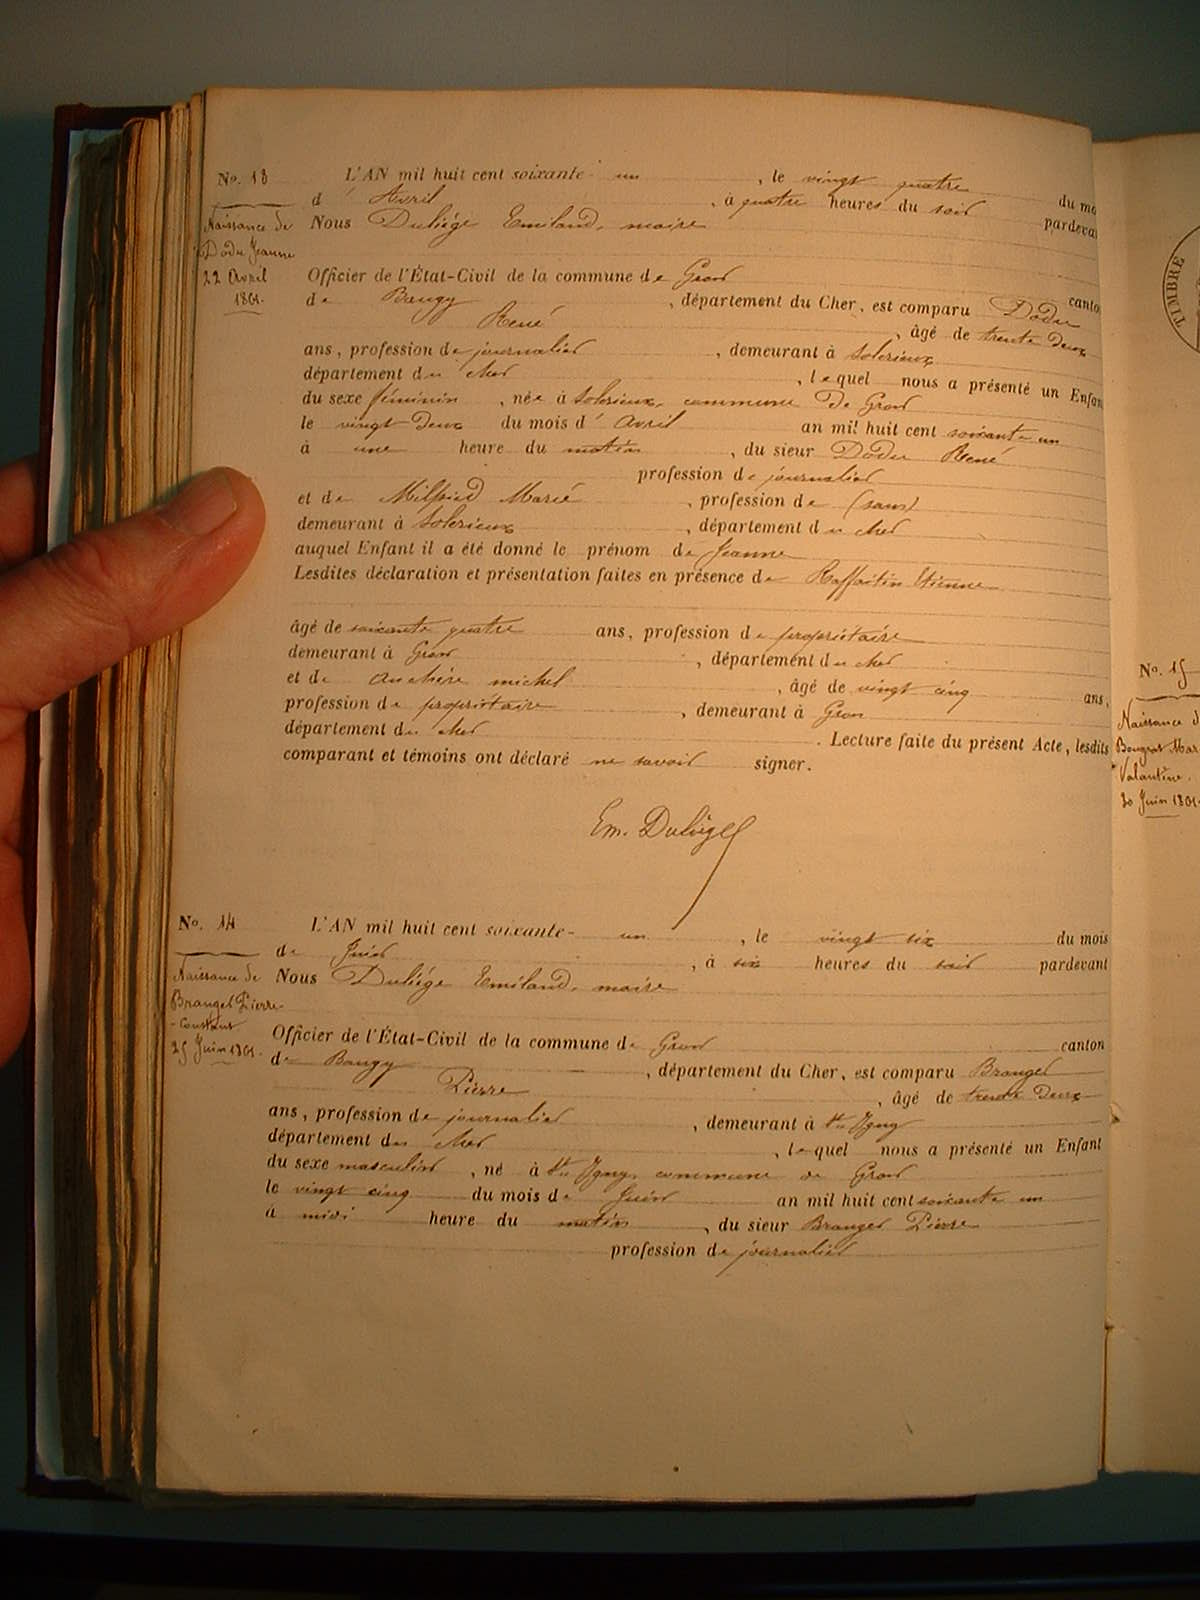 No. 13
Naissance de
Dodu Jeanne
22 Avril
1861.
L'AN mil huit cent soixante un, le vingt quatre du mo
d'Avril, à quatre heures du soir pardevan
Nous Duliége Emiland, maire
Officier de l'État-Civil de la commune de Gron canton
de Baugy, département du Cher, est comparu Dodu
René, âgé de trente deux
ans, profession de journalier, demeurant à Solerieux
département du cher, lequel nous a présenté un Enfan
du sexe féminin, née à Solerieux, commune de Gron
le vingt deux du mois d'Avril an mil huit cent soixante un
à une heure du matin, du sieur Dodu René
profession de journalier
et de Milpied Marie, profession de (sans)
demeurant à Solerieux, département du cher
auquel Enfant il a été donné le prénom de Jeanne
Lesdites déclaration et présentation faites en présence de Raffaitin Etienne
âgé de soixante quatre ans, profession de propriétaire
demeurant à Gron, département du cher
et de michel, âgé de vingt cinq ans,
profession de propriétaire, demeurant à Gron
département du cher. Lecture faite du présent Acte, lesdits
comparant et témoins ont déclaré ne savoir signer.
Em. Duliége
No. 14
Naissance de
Branger Pierre
-Constant
25 Juin 1861.
L'AN mil huit cent soixante-un, le vingt six du mois
de Juin, à six heures du soir pardevant
Nous Duliége Emiland, maire
Officier de l'État-Civil de la commune de Gron canton
de Baugy, département du Cher, est comparu Branger
Pierre, âgé de trente deux
ans, profession de journalier, demeurant à St Igny
département du cher, lequel nous a présenté un Enfant
du sexe masculin, né à St Igny, commune de Gron
le vingt cinq du mois de Juin an mil huit cent soixante un
à midi heure du matin, du sieur Branger Pierre
profession de journalier
TIMBRE
No. 15
Naissance d
Bougrat Mar
Valantine.
30 Juin 1861.